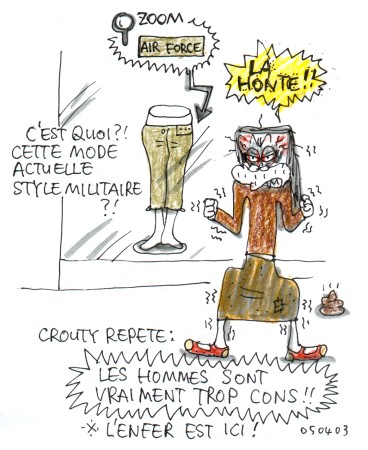 ZOOM
AIR FORCE
LA
HONTE!!
C'EST QUOI?!
CETTE MODE
ACTUELLE
STYLE MILITAIRE
?!
CROUTY REPETE:
LES HOMMES SONT
VRAIMENT TROP CONS!!
※ L'ENFER EST ICI!
050403